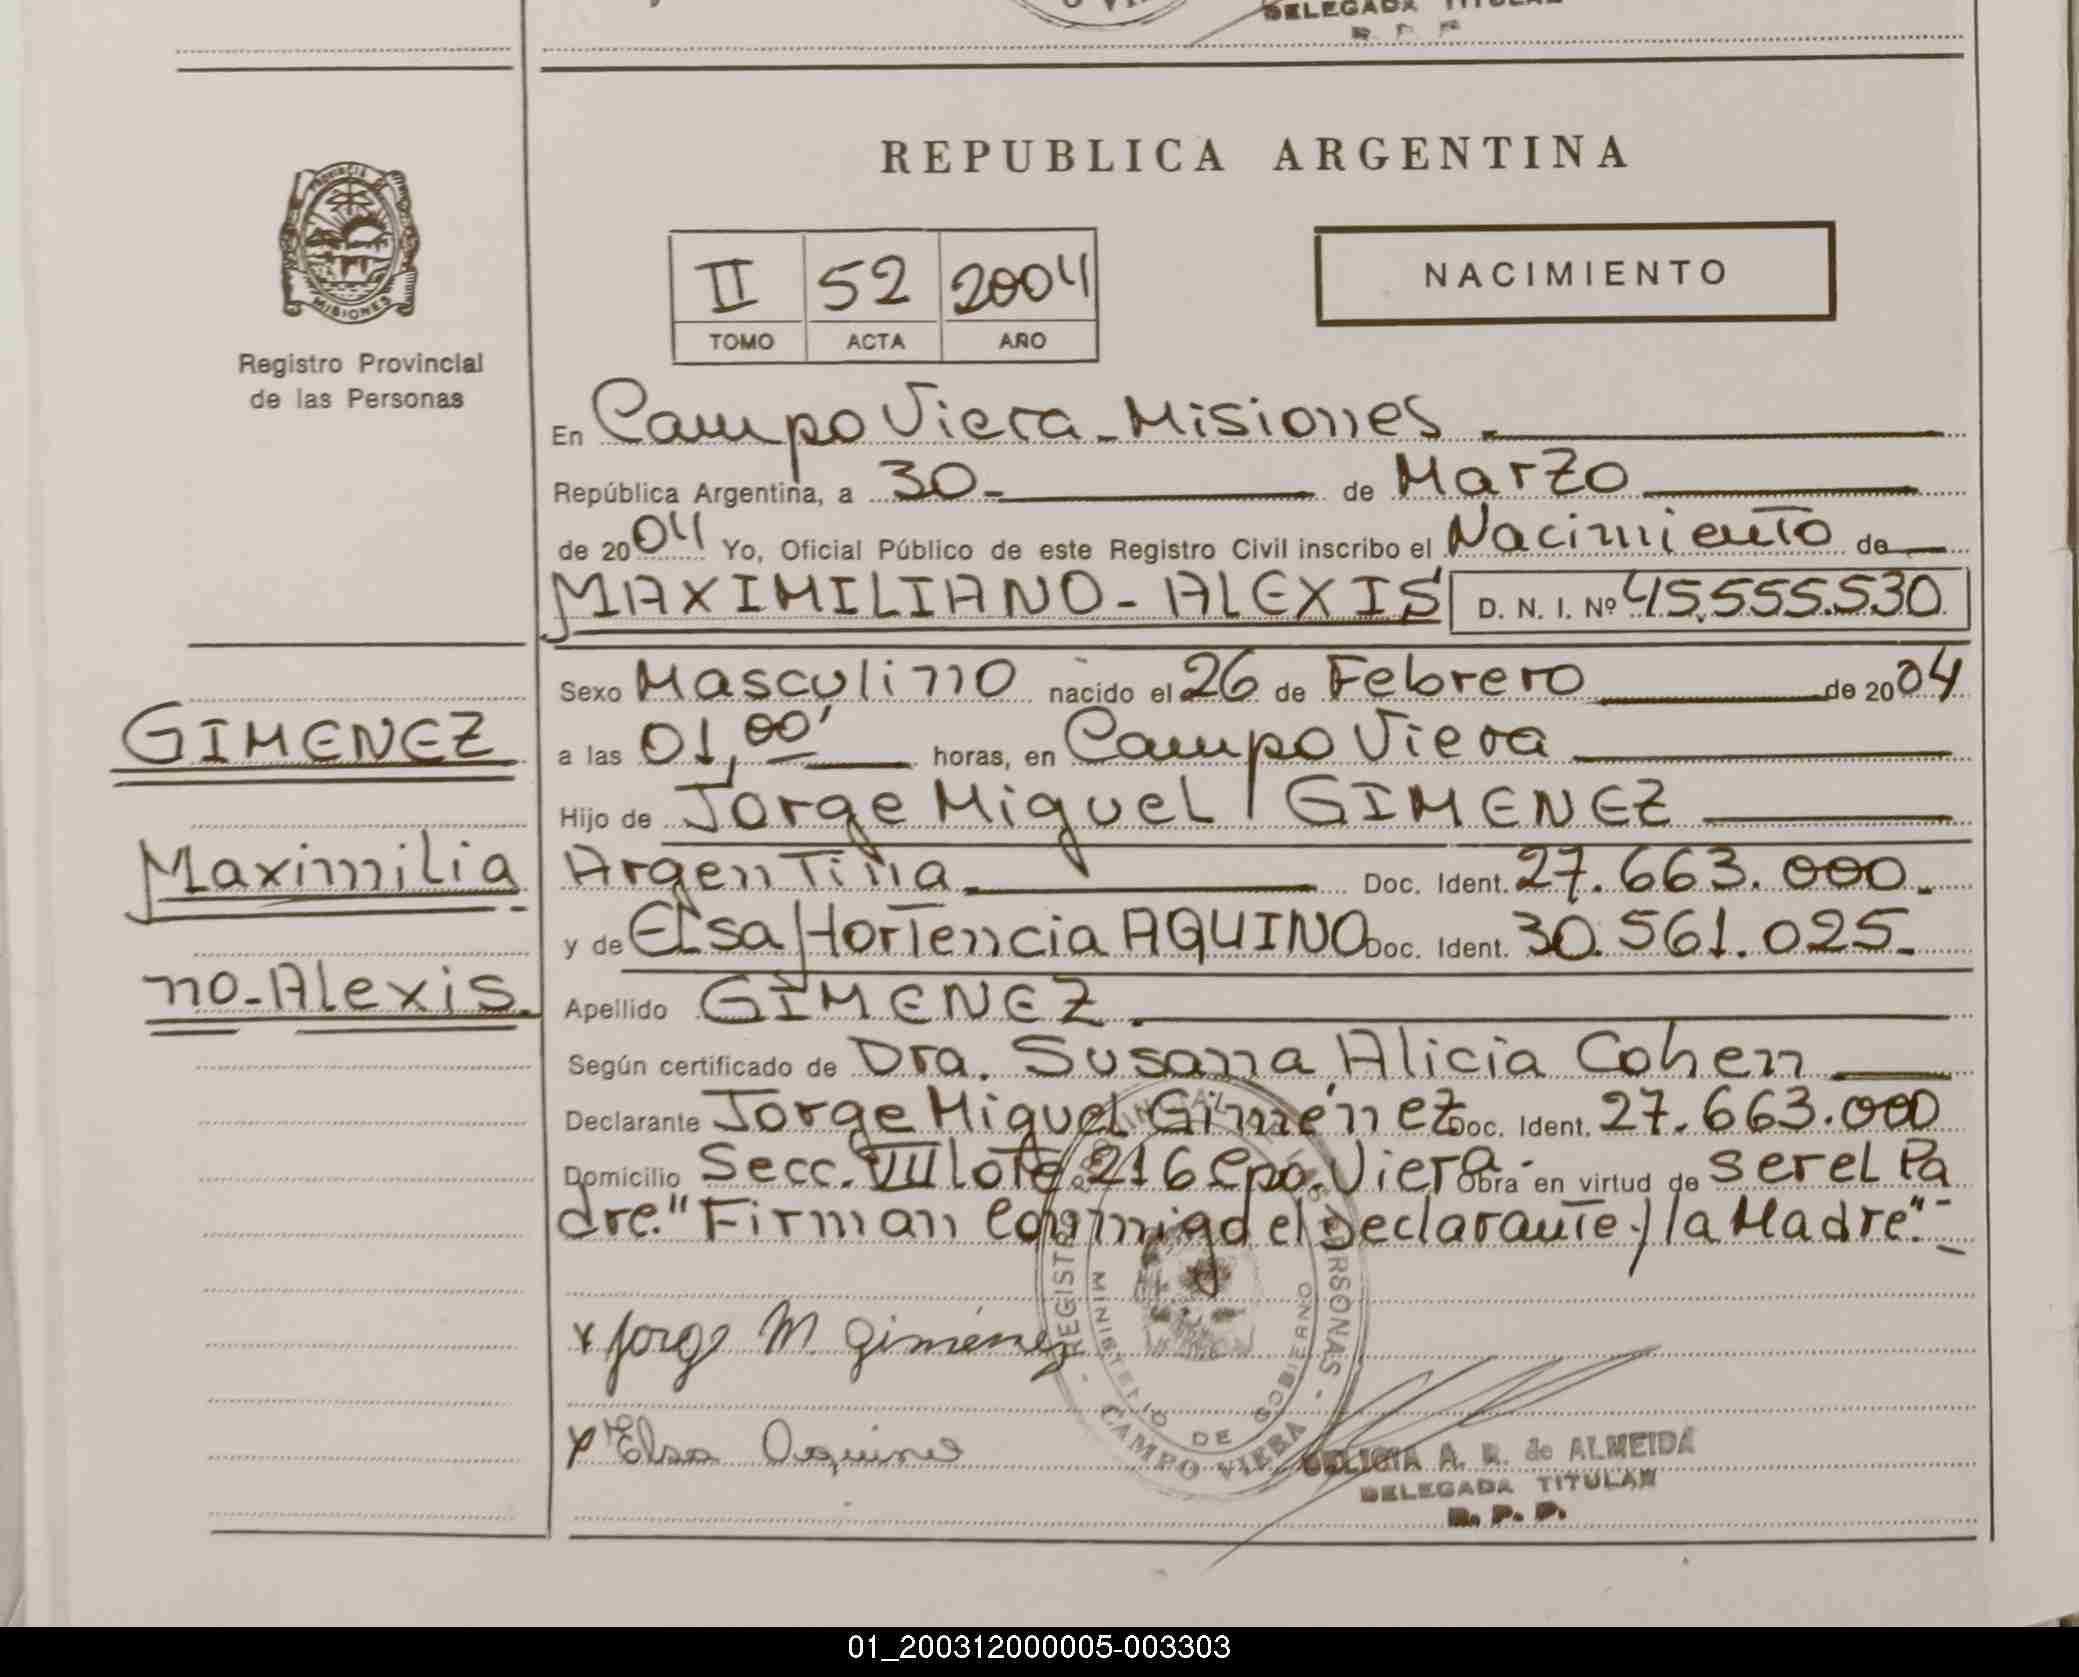 DELEGADA TITULAR
R. P. P.
PROVINCIA DE
MISIONES
Registro Provincial
de las Personas
REPUBLICA ARGENTINA
II 52 2004
TOMO ACTA AÑO
NACIMIENTO
En Campo Viera - Misiones
República Argentina, a 30 de Marzo
de 2004 Yo, Oficial Público de este Registro Civil inscribo el Nacimiento de
MAXIMILIANO - ALEXIS D. N. I. Nº 45.555.530
Sexo Masculino nacido el 26 de Febrero de 2004
GIMENEZ
a las 01,00' horas, en Campo Viera
Hijo de Jorge Miguel GIMENEZ
Maximilia
Argentina Doc. Ident. 27.663.000.
y de Elsa Hortencia AQUINO Doc. Ident. 30.561.025.
no - Alexis.
Apellido GIMENEZ
Según certificado de Dra. Susana Alicia Cohen
Declarante Jorge Miguel Giménez Doc. Ident. 27.663.000
Domicilio Secc. VIII lote 216 Cpo. Viera Obra en virtud de ser el Pa
dre." Firman conmigo el Declarante y la Madre".-
x Jorge M. Giménez
x Elsa Aquino
REGISTRO PROVINCIAL DE LAS PERSONAS
MINISTERIO DE GOBIERNO
CAMPO VIERA
A. R. de ALMEIDA
DELEGADA TITULAR
R. P. P.
01_200312000005-003303